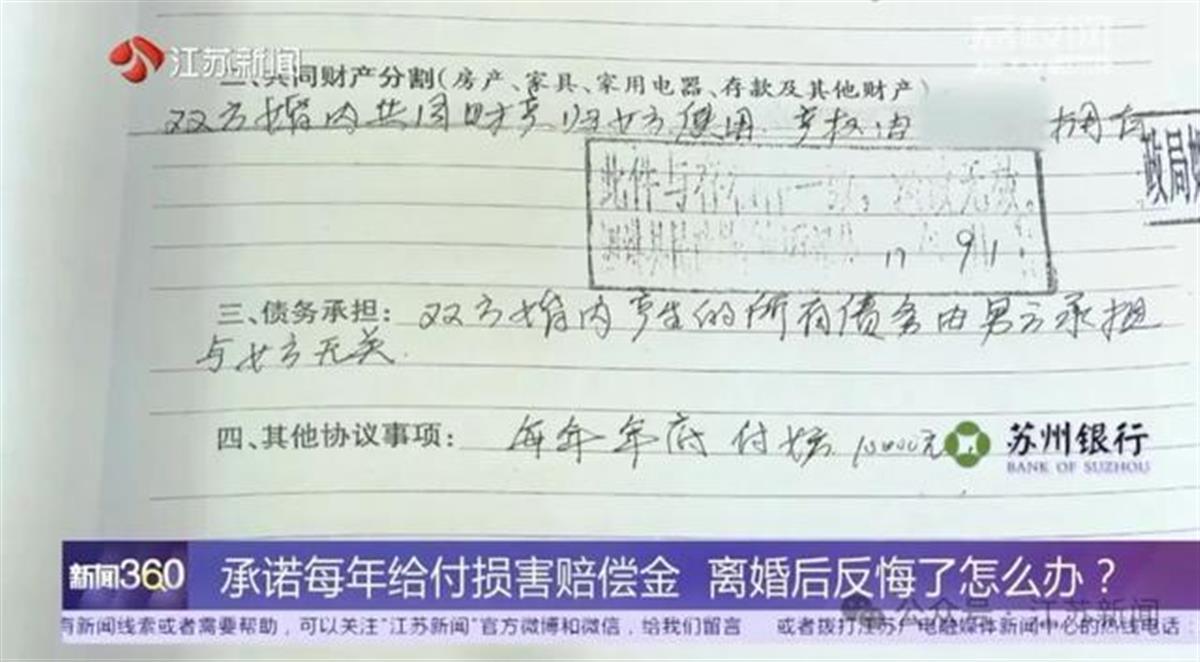 江苏新闻
二、共同财产分割(房产、家具、家用电器、存款及其他财产)
双方婚内共同财产归女方使用.产权由 拥有
此件与存 一致,涂改无效。
政局婚
三、债务承担: 双方婚内产生的所有债务由男方承担
与女方无关.
四、其他协议事项: 每年年底付女方 10000元
苏州银行
BANK OF SUZHOU
新闻360
承诺每年给付损害赔偿金 离婚后反悔了怎么办?
公众号·江苏新闻
有新闻线索或者需要帮助,可以关注"江苏新闻"官方微博和微信,给我们留言 或者拨打江苏广电融媒体新闻中心的热线电话: